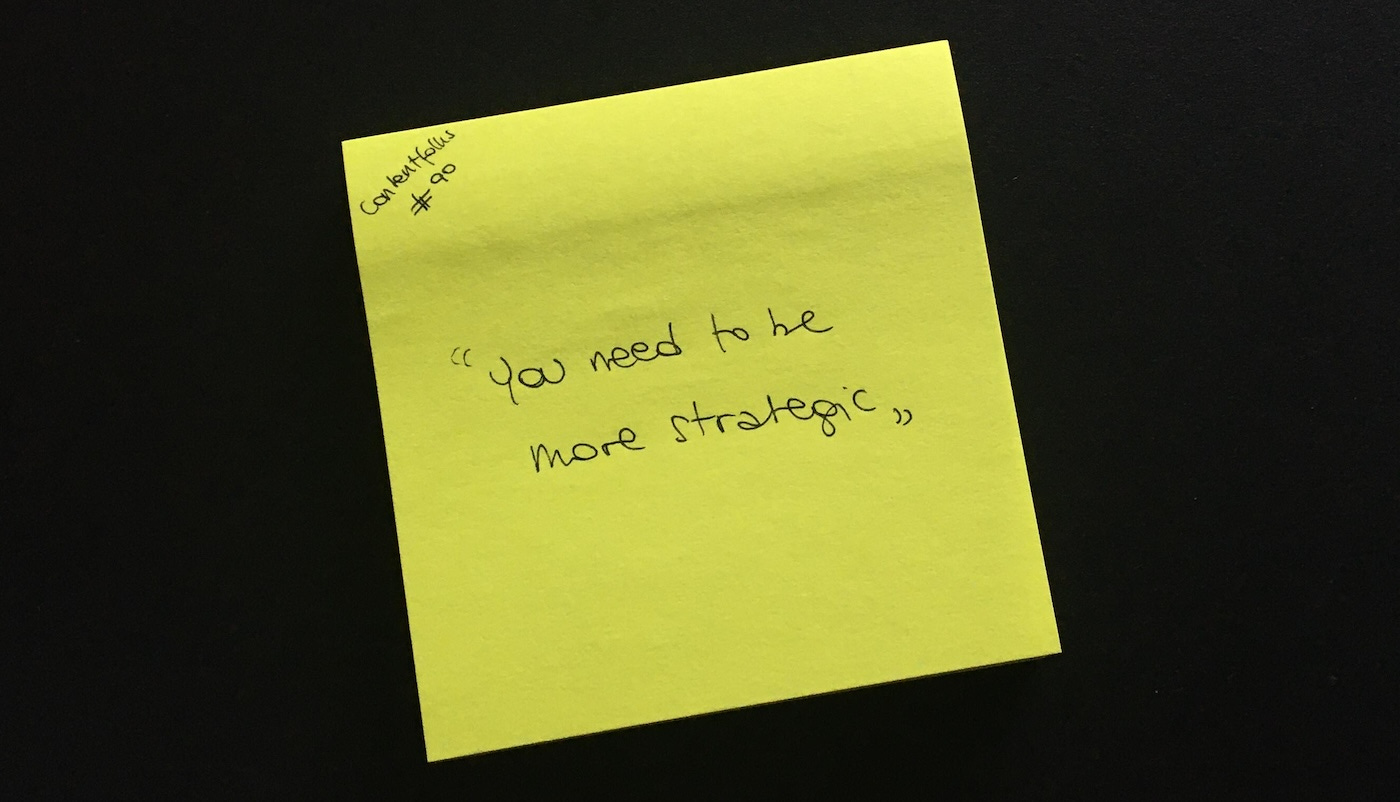 contentfolks
#90
“You need to be
more strategic„